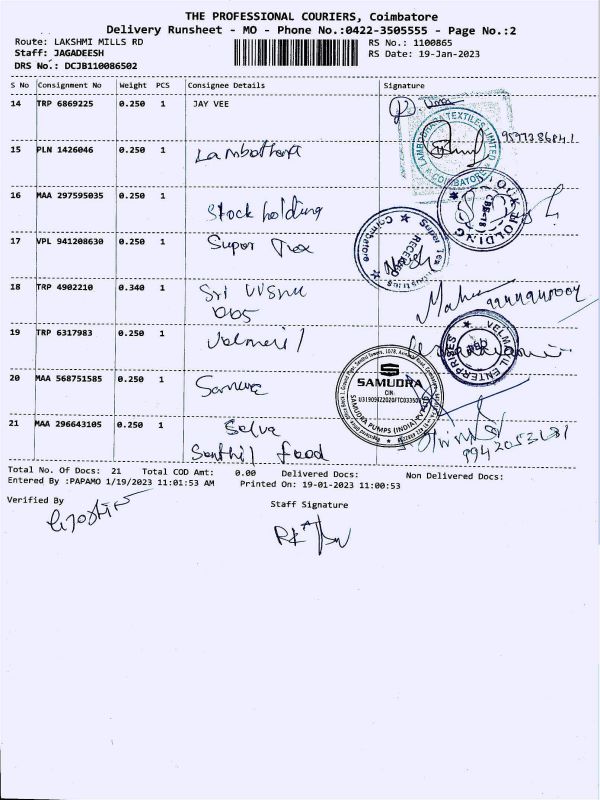 THE PROFESSIONAL COURIERS, Coimbatore
Delivery Runsheet - MO - Phone No.:0422-3505555 - Page No.:2
Route: LAKSHMI MILLS RD RS No.: 1100865
Staff: JAGADEESH RS Date: 19-Jan-2023
DRS No.: DCJB110086502
S No Consignment No Weight PCS Consignee Details Signature
14 TRP 6869225 0.250 1 JAY VEE
LAMBODHARA TEXTILES LIMITED
COIMBATORE
15 PLN 1426046 0.250 1
16 MAA 297595035 0.250 1 Stock holding
STOCK HOLDING
17 VPL 941208630 0.250 1 Super Tex
Super Tex Industries
RECEIVED
Coimbatore
18 TRP 4902210 0.340 1 Sri
19 TRP 6317983 0.250 1
VELMAAIL ENTERPRISES
20 MAA 568751585 0.250 1
SAMUDRA
CIN
SAMUDRA PUMPS (INDIA)
21 MAA 296643105 0.250 1 Selva
Senthil food
Total No. Of Docs: 21 Total COD Amt: 0.00 Delivered Docs: Non Delivered Docs:
Entered By :PAPAMO 1/19/2023 11:01:53 AM Printed On: 19-01-2023 11:00:53
Verified By
Staff Signature